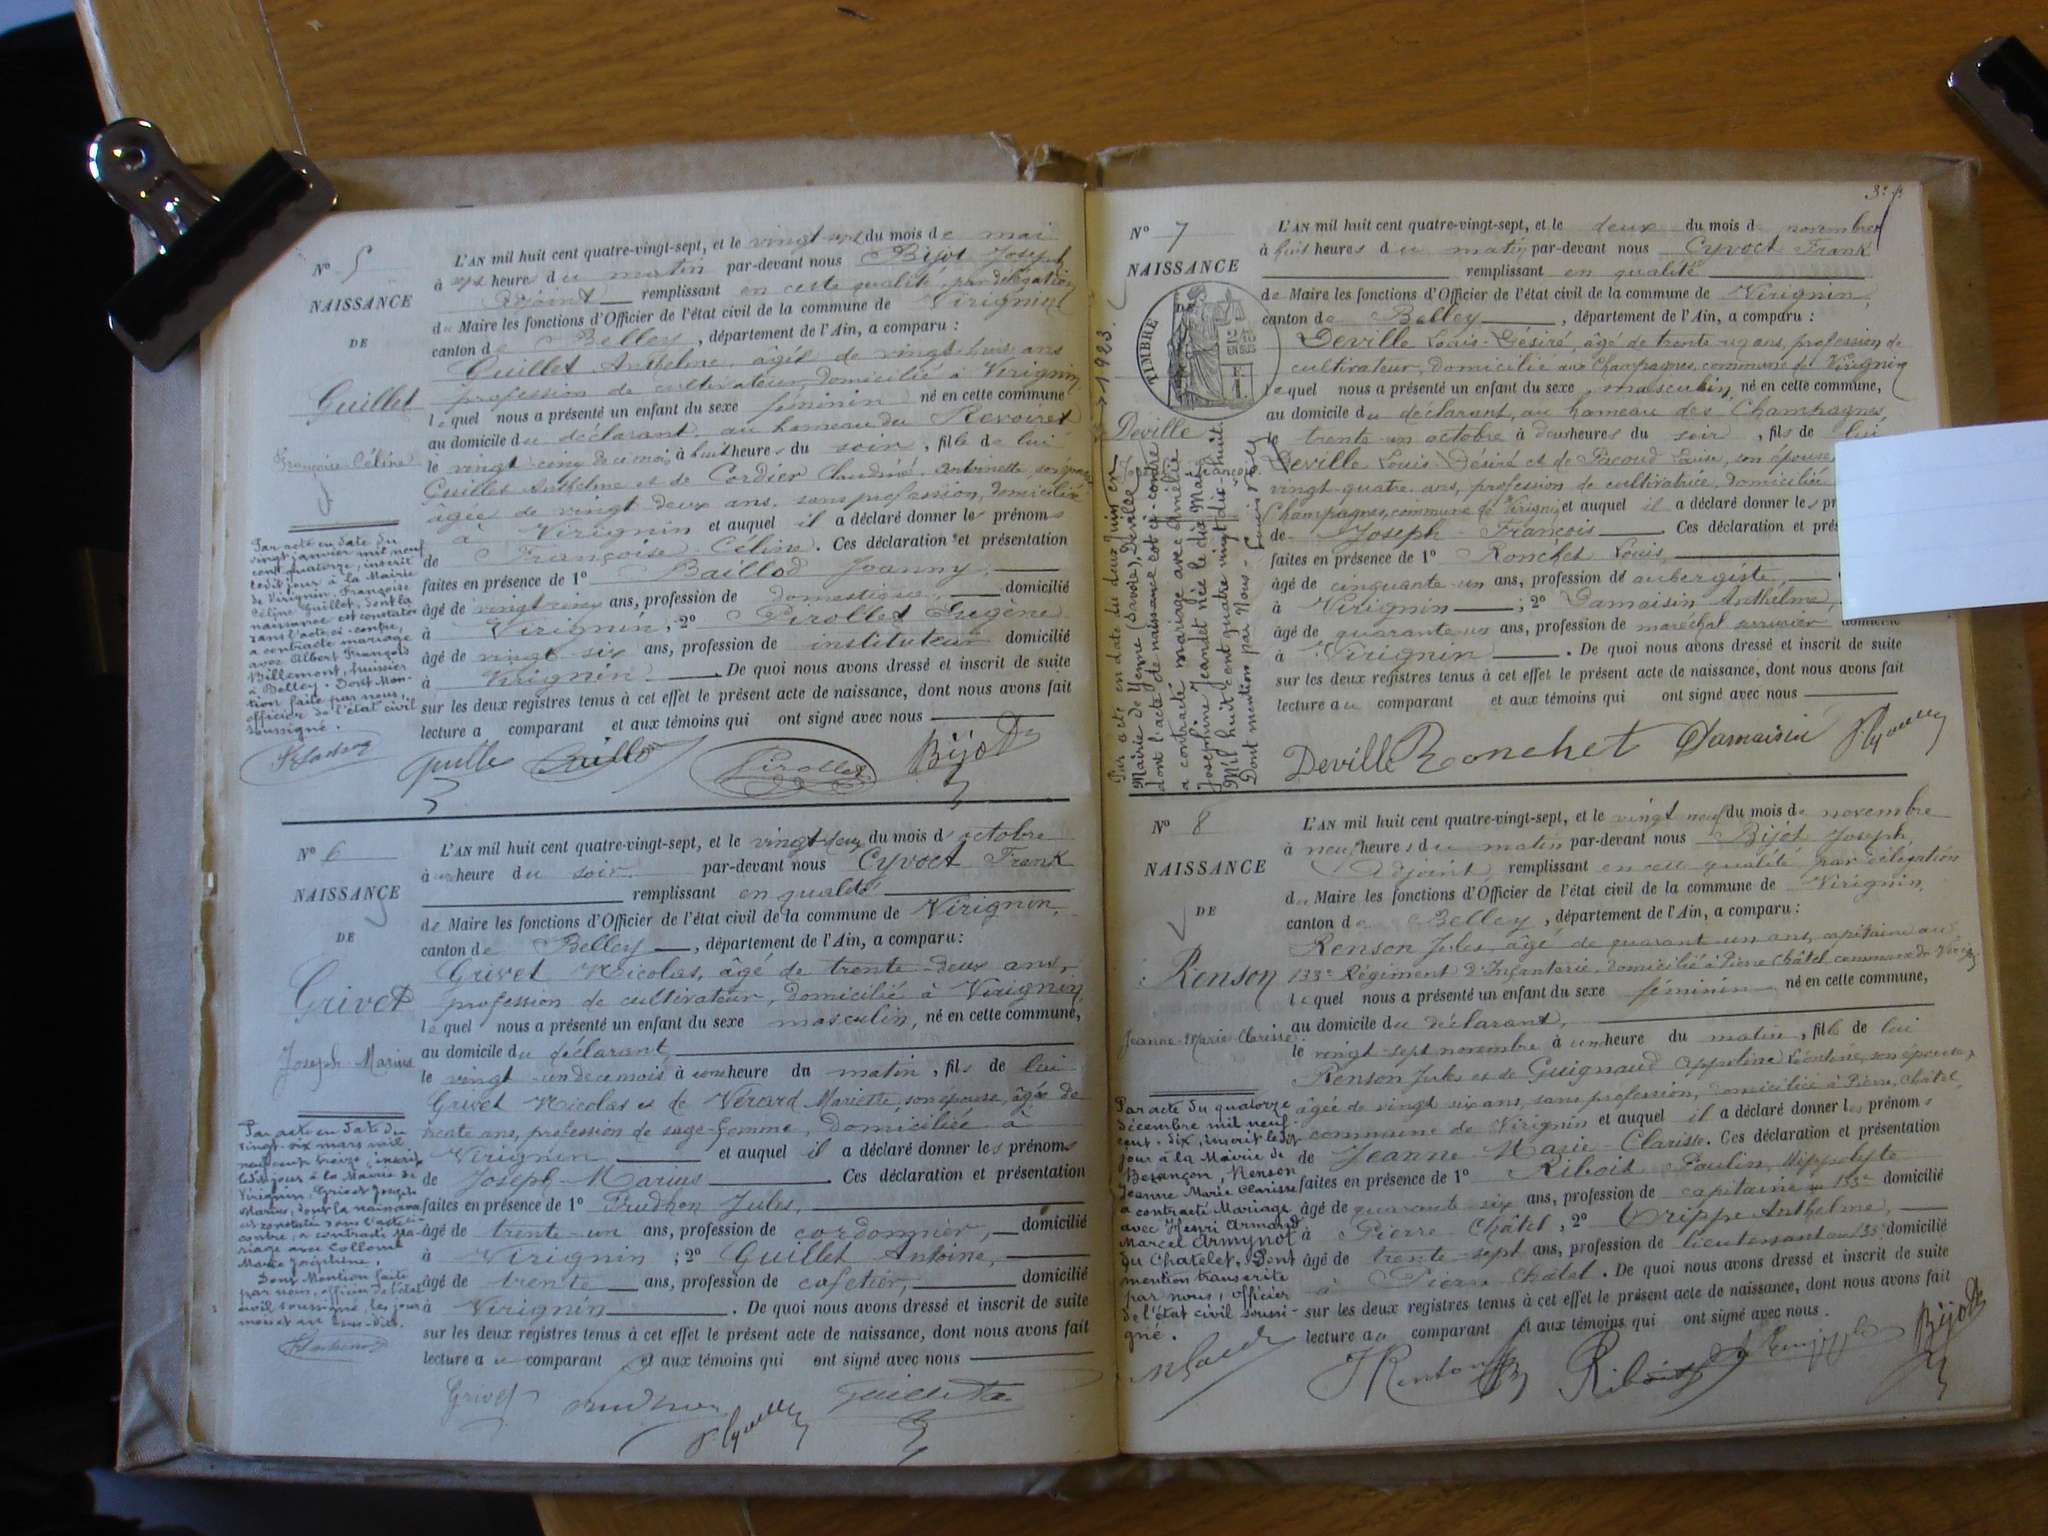 N° 5
NAISSANCE
DE
Guillet
Françoise Céline
L'AN mil huit cent quatre-vingt-sept, et le vingt-sept du mois de mai
à sept heures du matin par-devant nous Bijot Joseph
Adjoint remplissant en cette qualité, par délégation
du Maire les fonctions d'Officier de l'état civil de la commune de Virignin
canton de Belley, département de l'Ain, a comparu :
Guillet Anthelme, âgé de vingt-huit ans
profession de cultivateur, domicilié à Virignin
lequel nous a présenté un enfant du sexe féminin né en cette commune
au domicile du déclarant, au hameau du Revoiret
le vingt-cinq de ce mois, à huit heures du soir, fille de lui
Guillet Anthelme et de Cordier Claudine Antoinette, son épouse
âgée de vingt-deux ans, sans profession, domiciliée
à Virignin et auquel il a déclaré donner les prénoms
de Françoise Céline. Ces déclaration et présentation
faites en présence de 1° Baillod Joanny,
âgé de ans, profession de domestique, domicilié
à Virignin ; 2° Pirollet Eugène
âgé de vingt-six ans, profession de instituteur domicilié
à Virignin. De quoi nous avons dressé et inscrit de suite
sur les deux registres tenus à cet effet le présent acte de naissance, dont nous avons fait
lecture au comparant et aux témoins qui ont signé avec nous
Par acte en date du
vingt janvier mil neuf
cent quatorze, inscrit
ledit jour à la Mairie
de Virignin, Françoise
Céline Guillet, dont la
naissance est constatée
dans l'acte ci-contre,
a contracté mariage
avec Albert François
Billemont, huissier
à Belley. Dont men-
tion faite par nous,
officier de l'état civil
soussigné.
Guillet Baillod Pirollet Bijot
N° 6
NAISSANCE
DE
Grivet
Joseph-Marius
L'AN mil huit cent quatre-vingt-sept, et le vingt-deux du mois d'octobre
à une heure du soir par-devant nous Cyvoct Frank
remplissant en qualité
de Maire les fonctions d'Officier de l'état civil de la commune de Virignin,
canton de Belley, département de l'Ain, a comparu :
Grivet Nicolas, âgé de trente-deux ans,
profession de cultivateur, domicilié à Virignin,
lequel nous a présenté un enfant du sexe masculin, né en cette commune,
au domicile du déclarant,
le vingt-un de ce mois à heure du matin, fils de lui
Grivet Nicolas et de Mariette, son épouse, âgée de
trente ans, profession de sage-femme, domiciliée à
Virignin et auquel il a déclaré donner les prénoms
de Joseph-Marius Ces déclaration et présentation
faites en présence de 1° Prudhon Jules,
âgé de trente-un ans, profession de cordonnier, domicilié
à Virignin ; 2° Guillet Antoine,
âgé de trente ans, profession de cafetier, domicilié
à Virignin. De quoi nous avons dressé et inscrit de suite
sur les deux registres tenus à cet effet le présent acte de naissance, dont nous avons fait
lecture au comparant et aux témoins qui ont signé avec nous
Par acte en date du
vingt-six mars mil
neuf cent treize, inscrit
ledit jour à la Mairie de
Virignin, Grivet Joseph
Marius, dont la naissance
est constatée dans l'acte ci-
contre, a contracté ma-
riage avec Collomb
Marie Joséphine.
Dont Mention faite
par nous, officier de l'état
civil soussigné, les jour
mois et an sus-dits.
Grivet
3e
N° 7
NAISSANCE
DE
TIMBRE
Deville
Joseph François
L'AN mil huit cent quatre-vingt-sept, et le deux du mois d novembre
à huit heures du matin par-devant nous Cyvoct Frank
remplissant en qualité
de Maire les fonctions d'Officier de l'état civil de la commune de Virignin,
canton de Belley, département de l'Ain, a comparu :
Deville Louis-Désiré, âgé de trente-un ans, profession de
cultivateur, domicilié aux Champagnes, commune de Virignin
lequel nous a présenté un enfant du sexe masculin, né en cette commune,
au domicile du déclarant, au hameau des Champagnes,
le trente-un octobre à deux heures du soir, fils de lui
Deville Louis-Désiré et de Pacoud Louise, son épouse
vingt-quatre ans, profession de cultivatrice, domiciliée
Champagnes, commune de Virignin et auquel il a déclaré donner les pr
de Joseph-François Ces déclaration et prés
faites en présence de 1° Ronchet Louis,
âgé de cinquante-un ans, profession de aubergiste,
à Virignin ; 2° Damaisin Anthelme,
âgé de quarante-un ans, profession de maréchal serrurier domicilié
à Virignin. De quoi nous avons dressé et inscrit de suite
sur les deux registres tenus à cet effet le présent acte de naissance, dont nous avons fait
lecture au comparant et aux témoins qui ont signé avec nous
Par acte en date du deux juin en 1923
Mairie de Yenne (Savoie), Deville
dont l'acte de naissance est ci-contre
a contracté mariage avec Amélie
Joséphine Jeandet née le dix Mai
Mil huit cent quatre vingt dix-huit
Dont mention par Nous
Deville Ronchet Damaisin
N° 8
NAISSANCE
DE
Renson
Jeanne-Marie-Clarisse
L'AN mil huit cent quatre-vingt-sept, et le vingt-neuf du mois de novembre
à neuf heures du matin par-devant nous Bijot Joseph
Adjoint remplissant en cette qualité par délégation
du Maire les fonctions d'Officier de l'état civil de la commune de Virignin,
canton de Belley, département de l'Ain, a comparu :
Renson Jules, âgé de quarante-un ans, capitaine au
133e Régiment d'Infanterie, domicilié à Pierre Châtel commune de Virignin
lequel nous a présenté un enfant du sexe féminin né en cette commune,
au domicile du déclarant,
le vingt-sept novembre à heure du matin, fille de lui
Renson Jules et de Guignaud Appoline Léontine, son épouse,
âgée de vingt-six ans, sans profession, domiciliée à Pierre-Châtel,
commune de Virignin et auquel il a déclaré donner les prénoms
de Jeanne-Marie-Clarisse. Ces déclaration et présentation
faites en présence de 1° Riboit Paulin Hippolyte
âgé de quarante-six ans, profession de capitaine au 133e domicilié
à Pierre Châtel ; 2° Grippe Anthelme,
âgé de trente-sept ans, profession de lieutenant au 133e domicilié
à Pierre Châtel. De quoi nous avons dressé et inscrit de suite
sur les deux registres tenus à cet effet le présent acte de naissance, dont nous avons fait
lecture au comparant et aux témoins qui ont signé avec nous.
Par acte du quatorze
décembre mil neuf
cent-dix, inscrit ledit
jour à la Mairie de
Besançon, Renson
Jeanne Marie Clarisse
a contracté Mariage
avec Henri Armand
Marcel Armynot
du Chatelet. Dont
mention transcrite
par nous, officier
de l'état civil soussi-
gné.
Renson Riboit Bijot